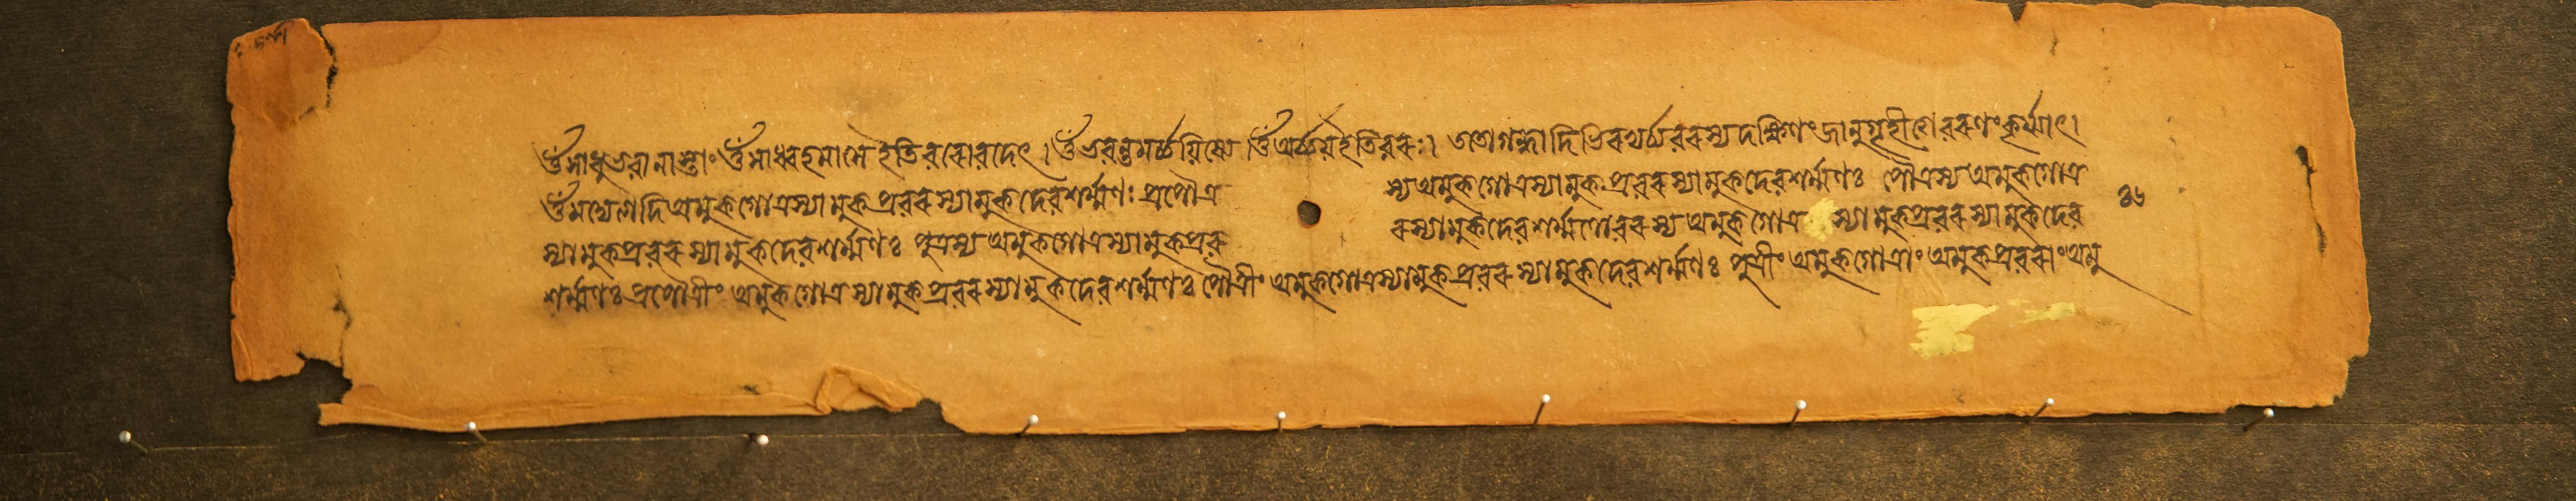 ওঁ সাধু ভবানাস্তাং ওঁ সাধ্বহমাসে ইতি বরো বদেৎ । ওঁ ভবন্তমর্চ্চয়িষ্যে ওঁ অর্চ্চয় ইতি বরঃ । ততো গন্ধাদিভিরভ্যর্চ্য বরস্য দক্ষিণং জানু গৃহীত্বা বরণং কুর্য্যাৎ ।
ওঁমদ্যেত্যাদি অমুকগোত্রস্যামুকপ্রবরস্যামুকদেবশর্ম্মণঃ প্রপৌত্রস্য অমুকগোত্রস্যামুকপ্রবরস্যামুকদেবশর্ম্মণঃ পৌত্রস্য অমুকগোত্র
স্যামুকপ্রবরস্যামুকদেবশর্ম্মণঃ পুত্রস্য অমুকগোত্রস্যামুকপ্রবরস্যামুকদেবশর্ম্মণো বরস্য অমুকগোত্রস্যামুকপ্রবরস্যামুকদেব
শর্ম্মণঃ প্রপৌত্রীং অমুকগোত্রস্যামুকপ্রবরস্যামুকদেবশর্ম্মণঃ পৌত্রীং অমুকগোত্রস্যামুকপ্রবরস্যামুকদেবশর্ম্মণঃ পুত্রীং অমুকগোত্রাং অমুকপ্রবরাং অমু